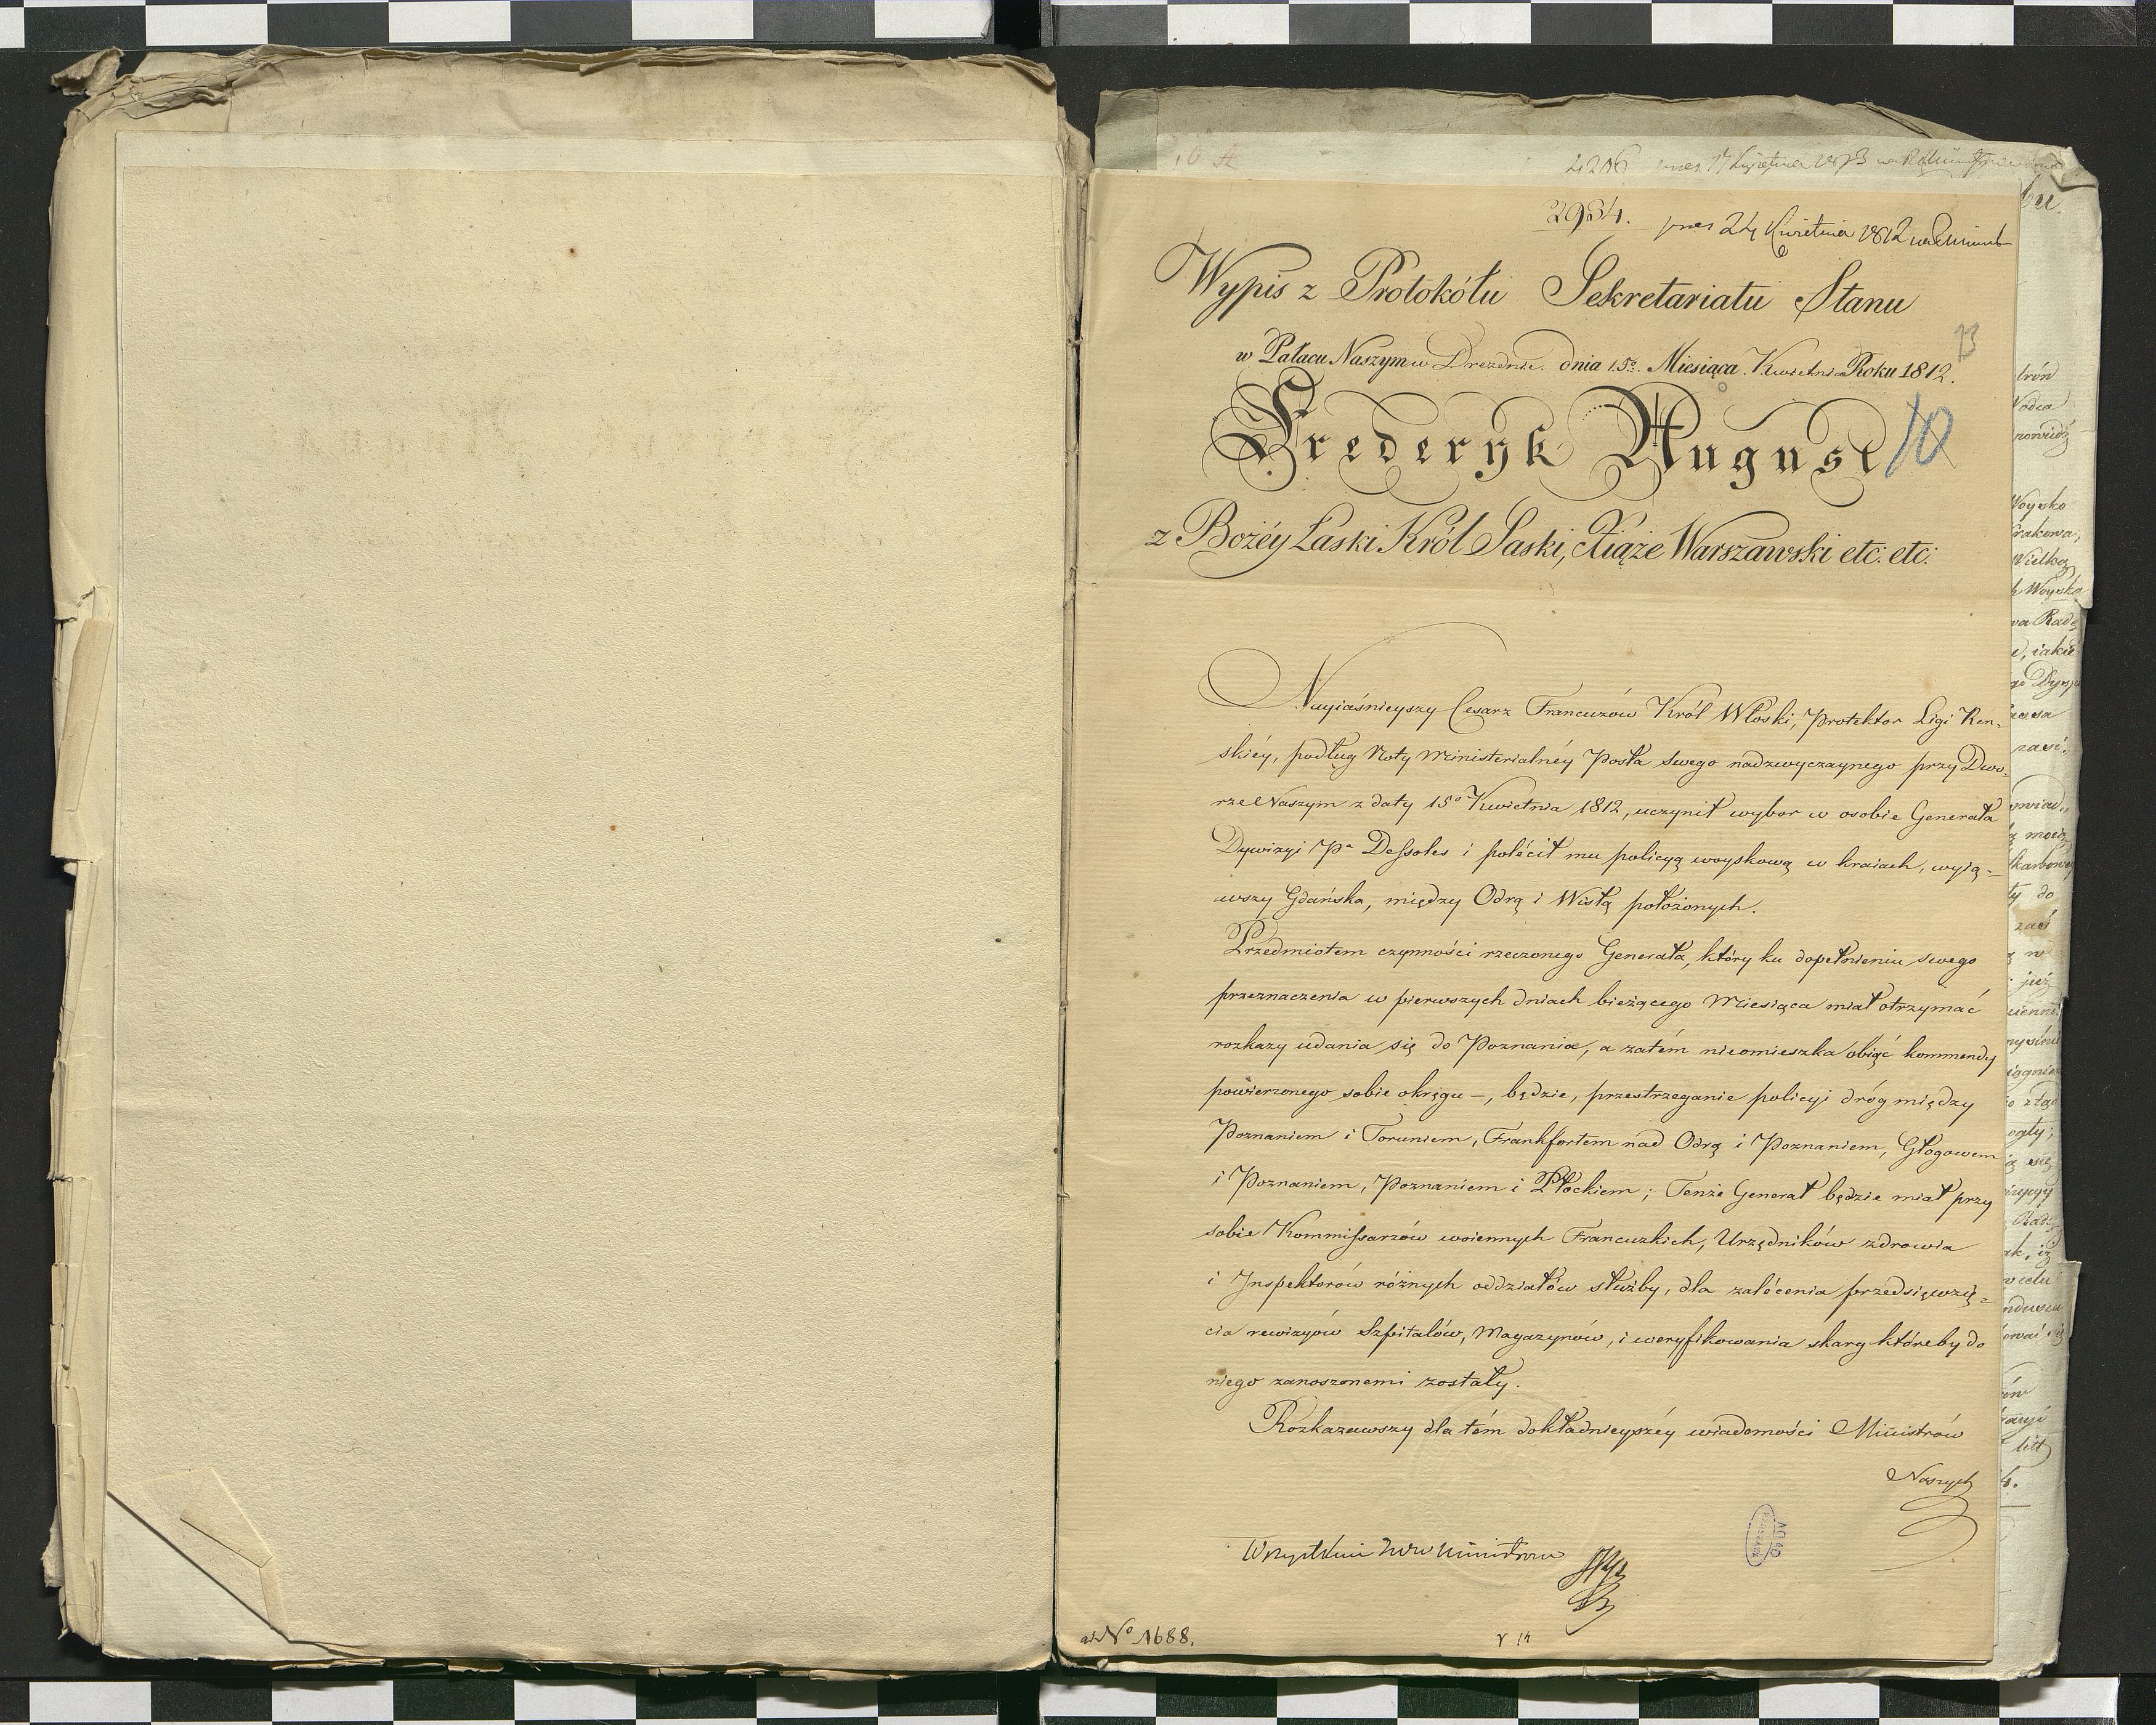 2934. pres 24 Kwietnia 1812
Wypis z Protokółu Sekretariatu Stanu
13
w Pałacu Naszym w Dreznie dnia 15o. Miesiąca Kwietnia Roku 1812.
Frederyk August
10
z Bożéy Łaski Król Saski, Xiąże Warszawski etc: etc:
Nayiaśnieyszy Cesarz Francuzów Król Włoski, Protektor Ligi Ren-
skiéy, podług Noty Ministerialnéy Posła swego nadzwyczaynego przy Dwo-
rze Naszym z daty 15o Kwietnia 1812, uczynił wybor w osobie Generała
Dywizyi Pa Dessoles i polécił mu policyą woyskową w kraiach, wyią-
wszy Gdańska, między Odrą i Wisłą położonych.
Przedmiotem czynności rzeczonego Generała, który ku dopełnieniu swego
przeznaczenia w pierwszych dniach bieżącego Miesiąca miał otrzymać
rozkazy udania się do Poznania, a zatém nieomieszka obiąć kommendy
powierzonego sobie okręgu -, będzie, przestrzeganie policyi dróg między
Poznaniem i Toruniem, Frankfortem nad Odrą i Poznaniem, Głogowem
i Poznaniem, Poznaniem i Płockiem; Tenże Generał będzie miał przy
sobie Kommissarzów woiennych Francuzkich, Urzędników zdrowia
i Inspektorów różnych oddziałów służby, dla zalécenia przedsięwzię-
cia rewizyów Szpitalów, Magazynów, i weryfikowania skarg któreby do
niego zanoszonemi zostały.
Rozkazawszy dla tém dokładnieyszéy wiadomości Ministrów
Naszych
Wszystkim JWW Ministrom
AGAD
ad No 1688.